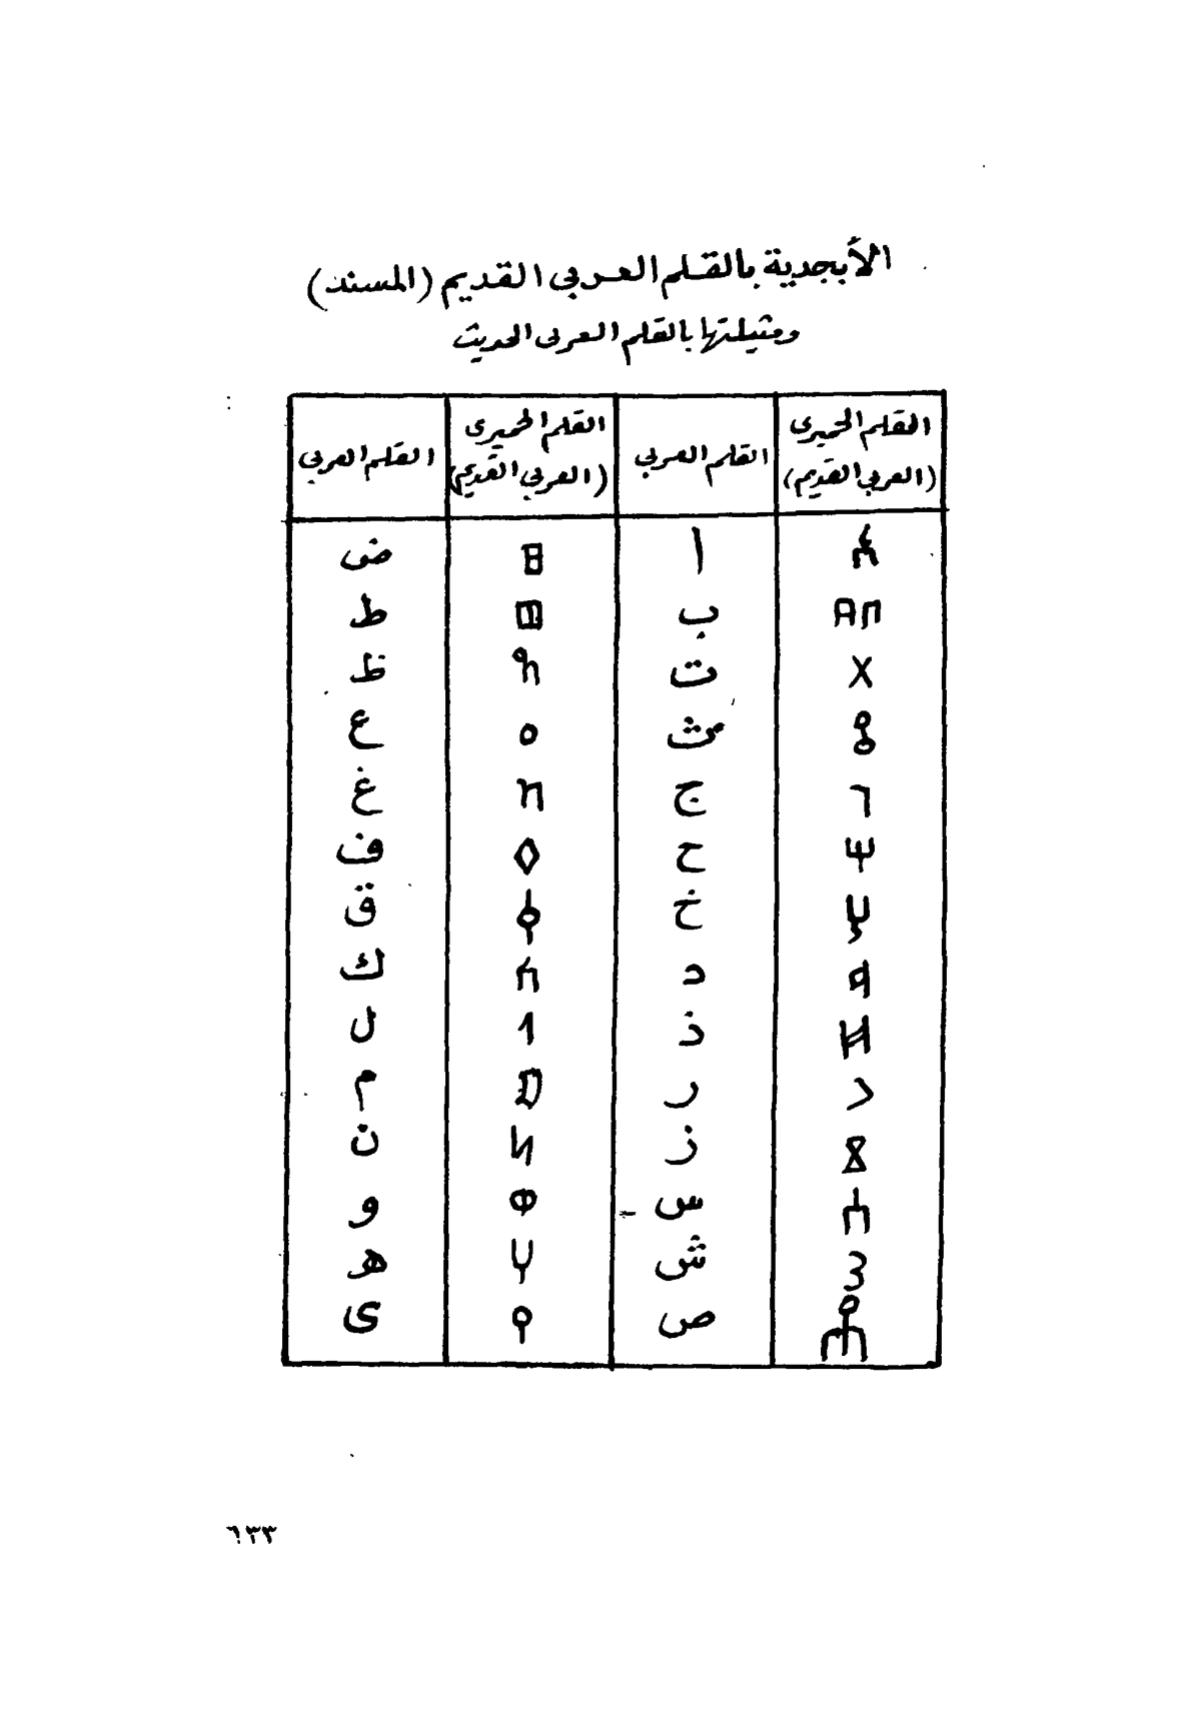 الأبجدية بالقلم العربي القديم (المسند)
ومثيلتها بالقلم العربى الحديث
القلم الحميرى (العربي القديم) القلم العربي القلم الحميرى (العربي القديم) القلم العربي
𐩱 ا 𐩳 ض
𐩨 ب 𐩷 ط
𐩩 ت 𐩼 ظ
𐩻 ث 𐩲 ع
𐩴 ج 𐩶 غ
𐩢 ح 𐩰 ف
𐩭 خ 𐩤 ق
𐩵 د 𐩫 ك
𐩹 ذ 𐩡 ل
𐩧 ر 𐩣 م
𐩸 ز 𐩬 ن
𐩪 س 𐩥 و
𐩦 ش 𐩠 هـ
𐩮 ص 𐩺 ى
٦٣٣